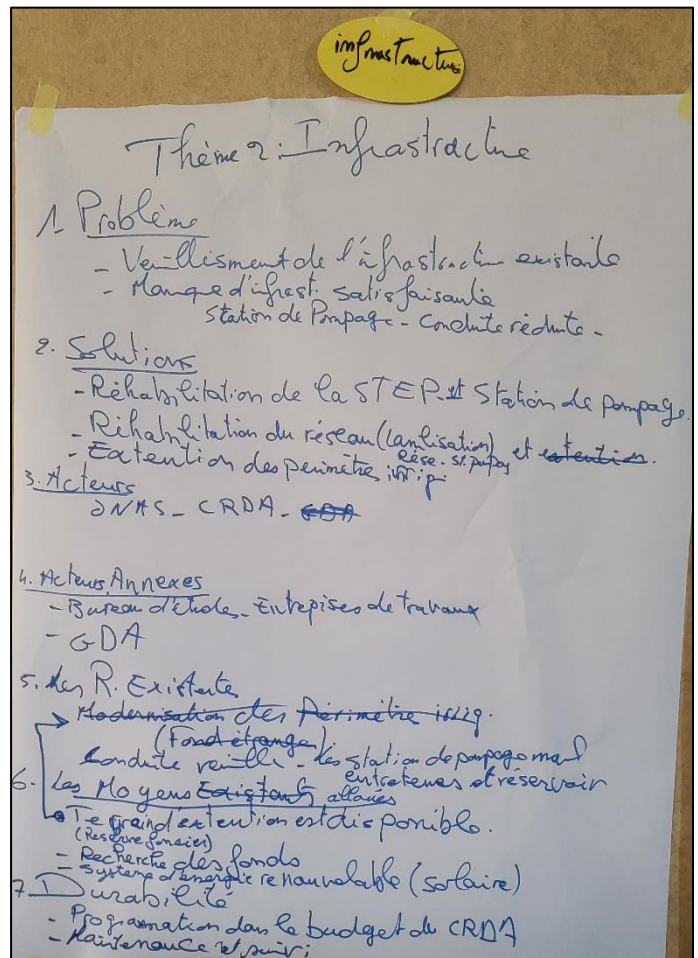 infrastructure
Thème 2: Infrastructure
1. Problème
- Veillisment de l'infrastructure existante
- Manque d'infrast. satisfaisante
Station de Pompage - Conduite réduite -
2. Solutions
- Réhabilitation de la STEP et Station de pompage.
- Réhabilitation du réseau (canlisation) et extention.
- Extention des perimètre irrig.
Rése. St. pompag
3. Acteurs
ONAS - CRDA - GDA
4. Acteurs Annexes
- Bureau d'études - Entrepises de travaux
- GDA
5. Les R. Existente
Modernisation des Périmètre irrig.
(Fond étranger)
Conduite veille - les station de pompage mal
entretenues et reservoir
6. Les Moyens Existants alloués
Terrain d'extention est disponible.
(Reserve foncier)
- Recherche des fonds
- Système d'énergie renouvelable (solaire)
7. Durabilité
- Programmation dans le budget du CRDA
- Maintenance et suivi